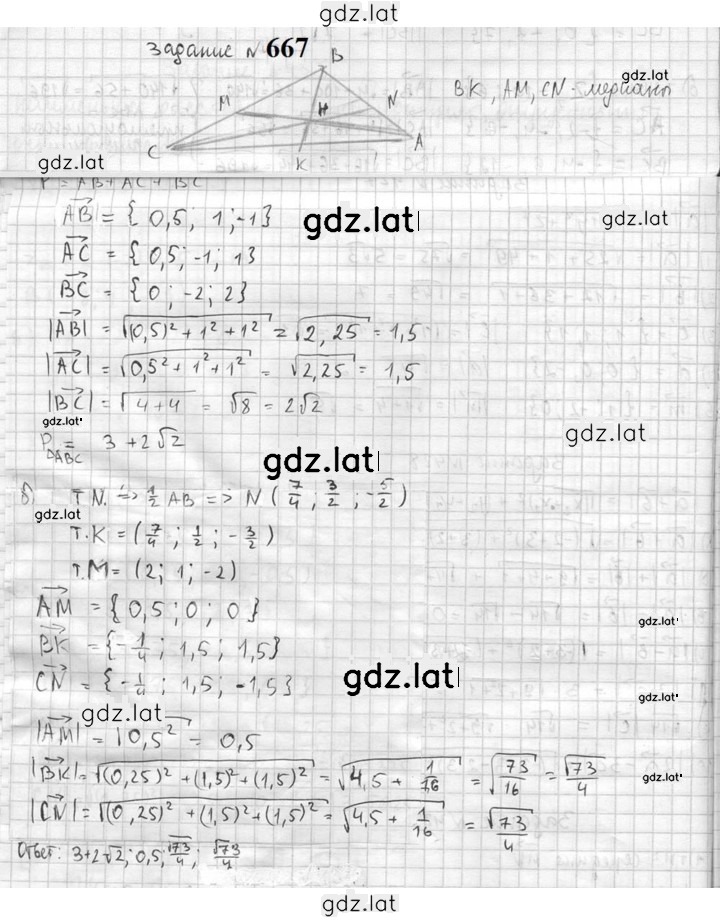 gdz.lat
Задание № 667
B
gdz.lat
M H N
BK, AM, CN - медианы
C A
gdz.lat
K
P = AB + AC + BC
AB = { 0,5; 1; -1}
gdz.lat
gdz.lat
AC = { 0,5; -1; 1}
BC = {0; -2; 2}
|AB| = √(0,5)² + 1² + 1² = √2,25 = 1,5
|AC| = √0,5² + 1² + 1² = √2,25 = 1,5
|BC| = √4+4 = √8 = 2√2
gdz.lat
gdz.lat
P ΔABC = 3 + 2√2
gdz.lat
б) т N. => 1/2 AB => N (7/4; 3/2; -5/2)
gdz.lat
т.K = (7/4; 1/2; -3/2)
т.M = (2; 1; -2)
AM = { 0,5; 0; 0}
gdz.lat
BK = {-1/4; 1,5; 1,5}
gdz.lat
CN = {-1/4; 1,5; -1,5}
gdz.lat
gdz.lat
|AM| = √0,5² = 0,5
|BK| = √(0,25)² + (1,5)² + (1,5)² = √4,5 + 1/16 = √73/16 = √73/4
gdz.lat
|CN| = √(0,25)² + (1,5)² + (1,5)² = √4,5 + 1/16 = √73/4
Ответ: 3+2√2; 0,5; √73/4; √73/4
gdz.lat
gdz.lat